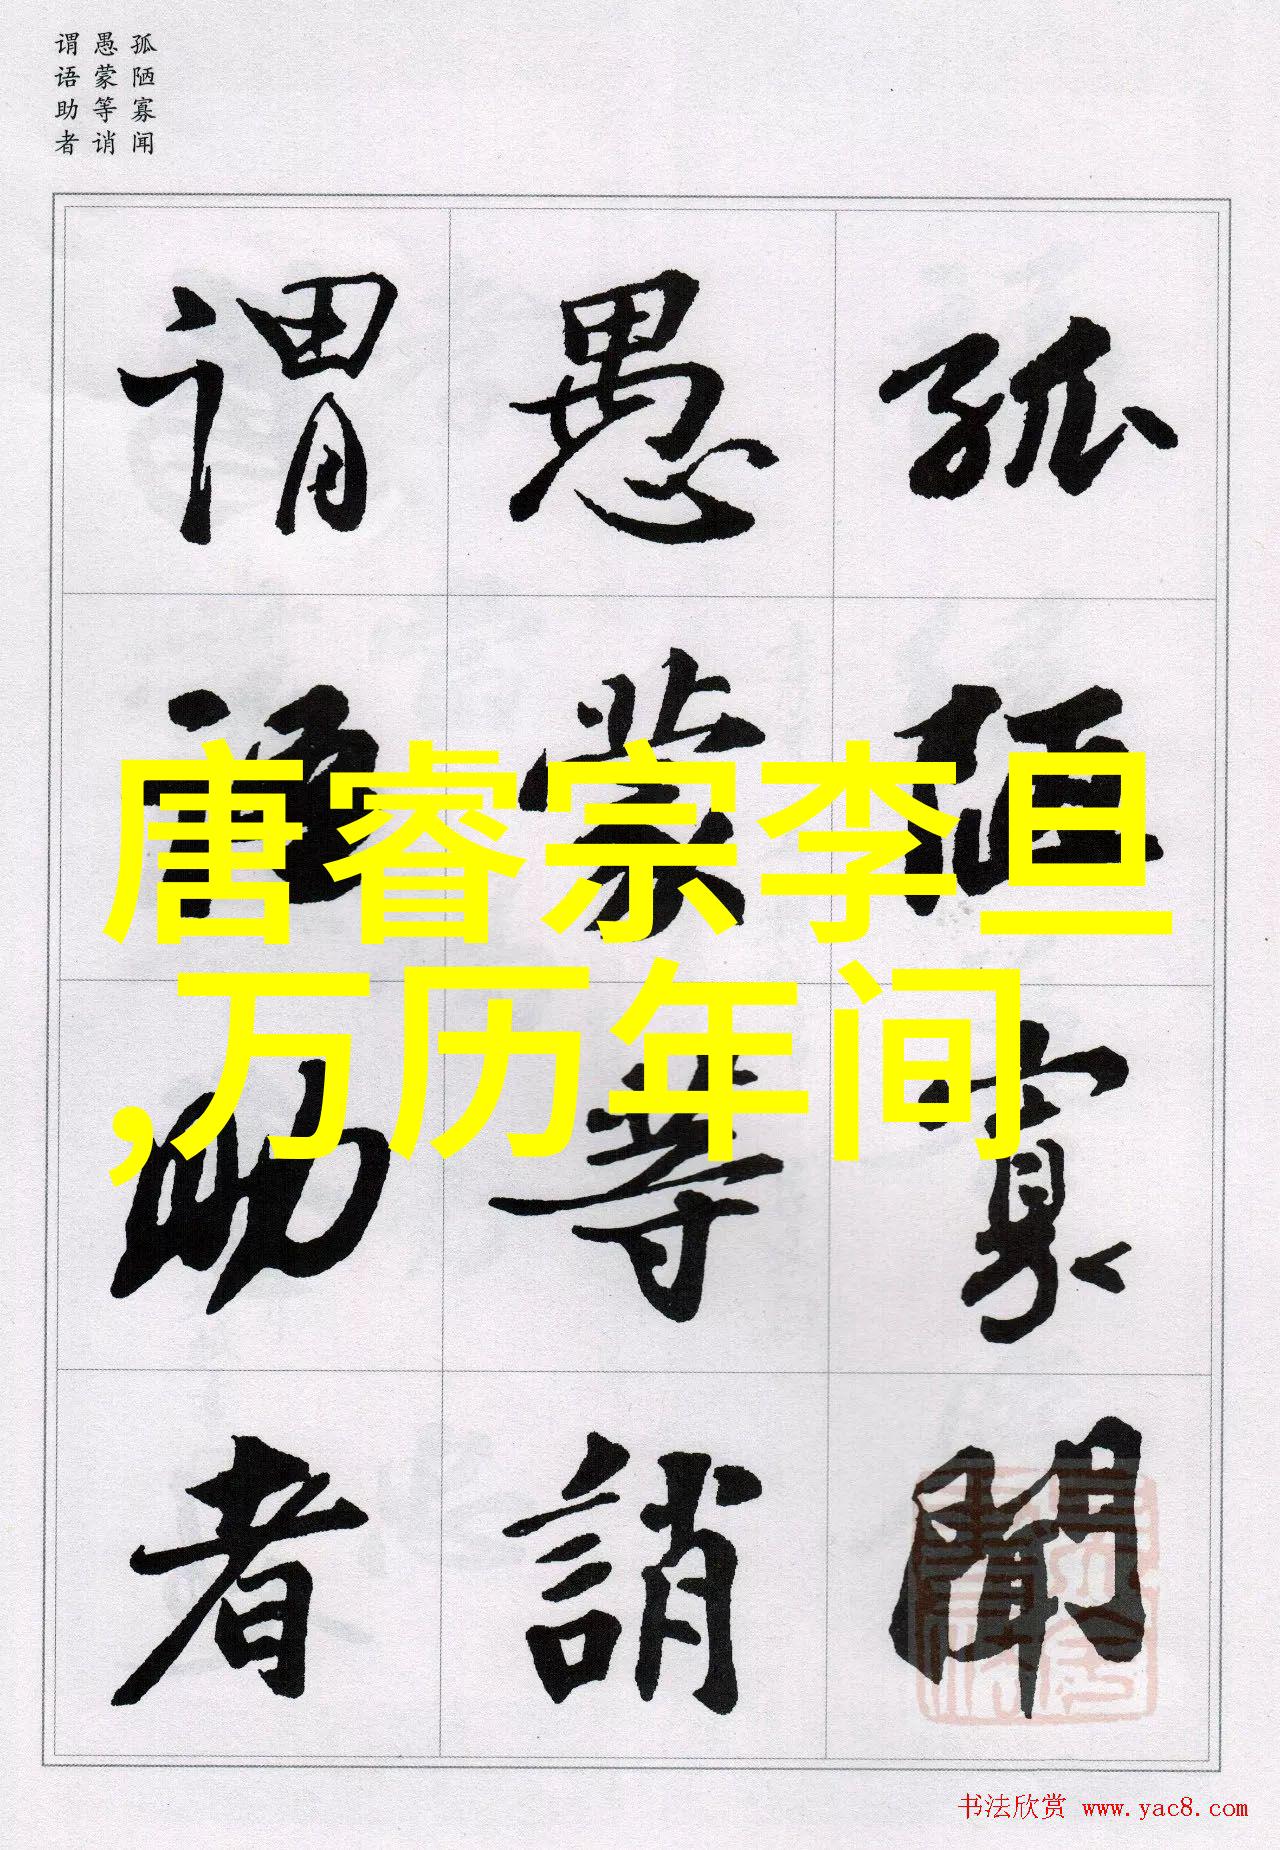 孤陋寡闻
愚蒙等诮
谓语助者
孤陋寡聞
愚蒙等誚
谓语助者
唐睿宗李旦
,万历年间
书法欣赏 www.yac8.com